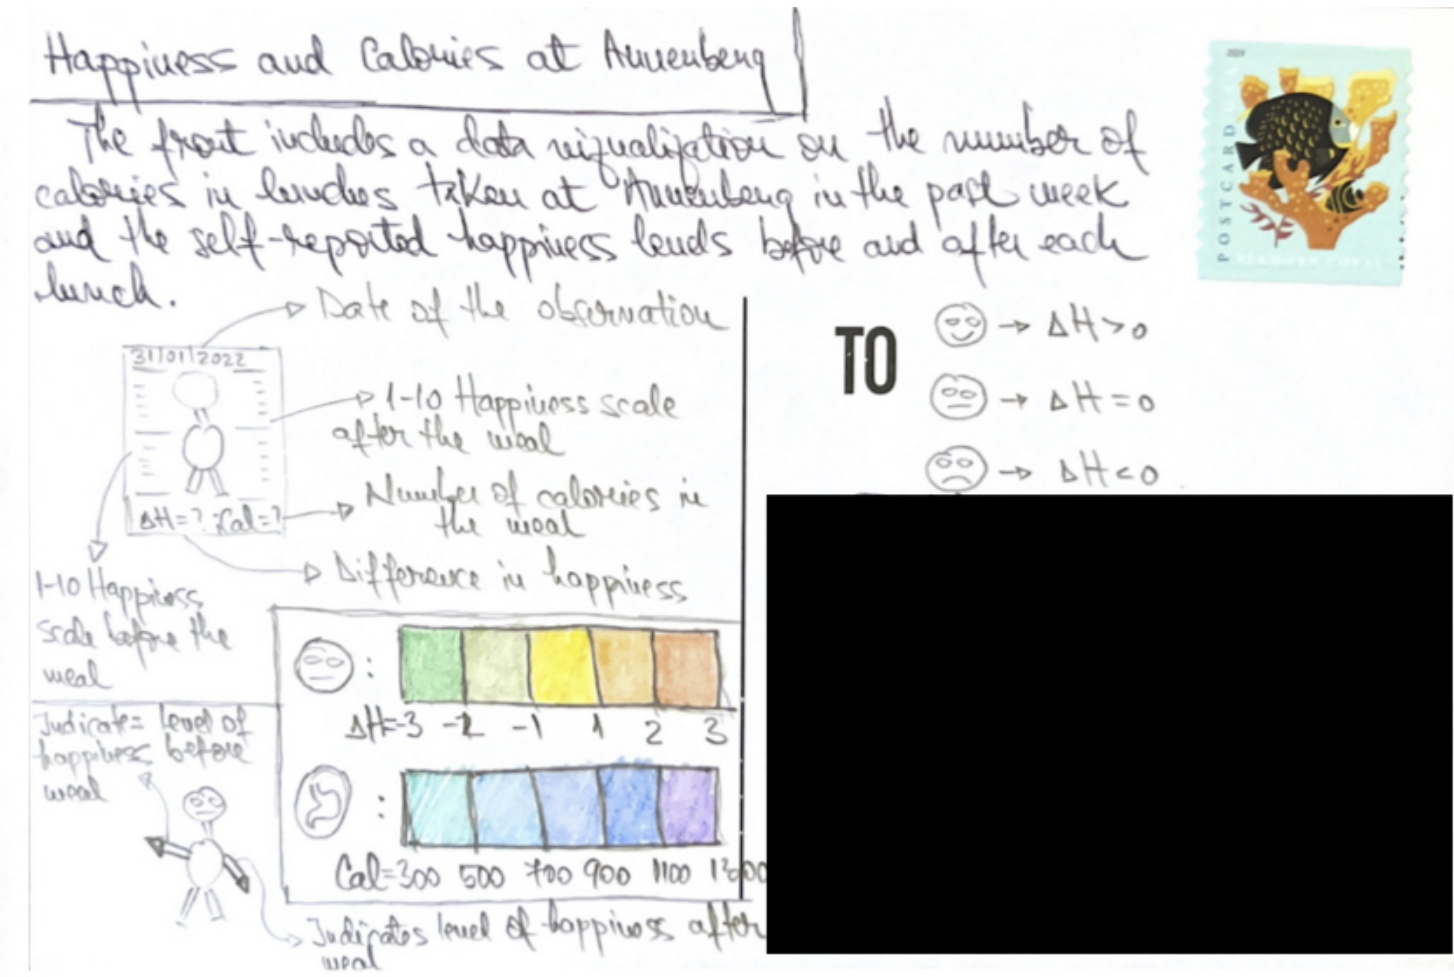 Happiness and Calories at Annenberg
The front includes a data vizualization on the number of
calories in lunches taken at Annenberg in the past week
and the self-reported happiness levels before and after each
lunch.
2019
POSTCARD
Date of the observation
31/01/2022
1-10 Happiness scale
after the meal
Number of calories in
the meal
ΔH=? Cal=?
Difference in happiness
1-10 Happiness
scale before the
meal
TO
→ ΔH>0
→ ΔH=0
→ ΔH<0
:
ΔH=-3 -2 -1 1 2 3
:
Cal=300 500 700 900 1100 1300
Indicates level of
happiness before
meal
Indicates level of happiness after
meal